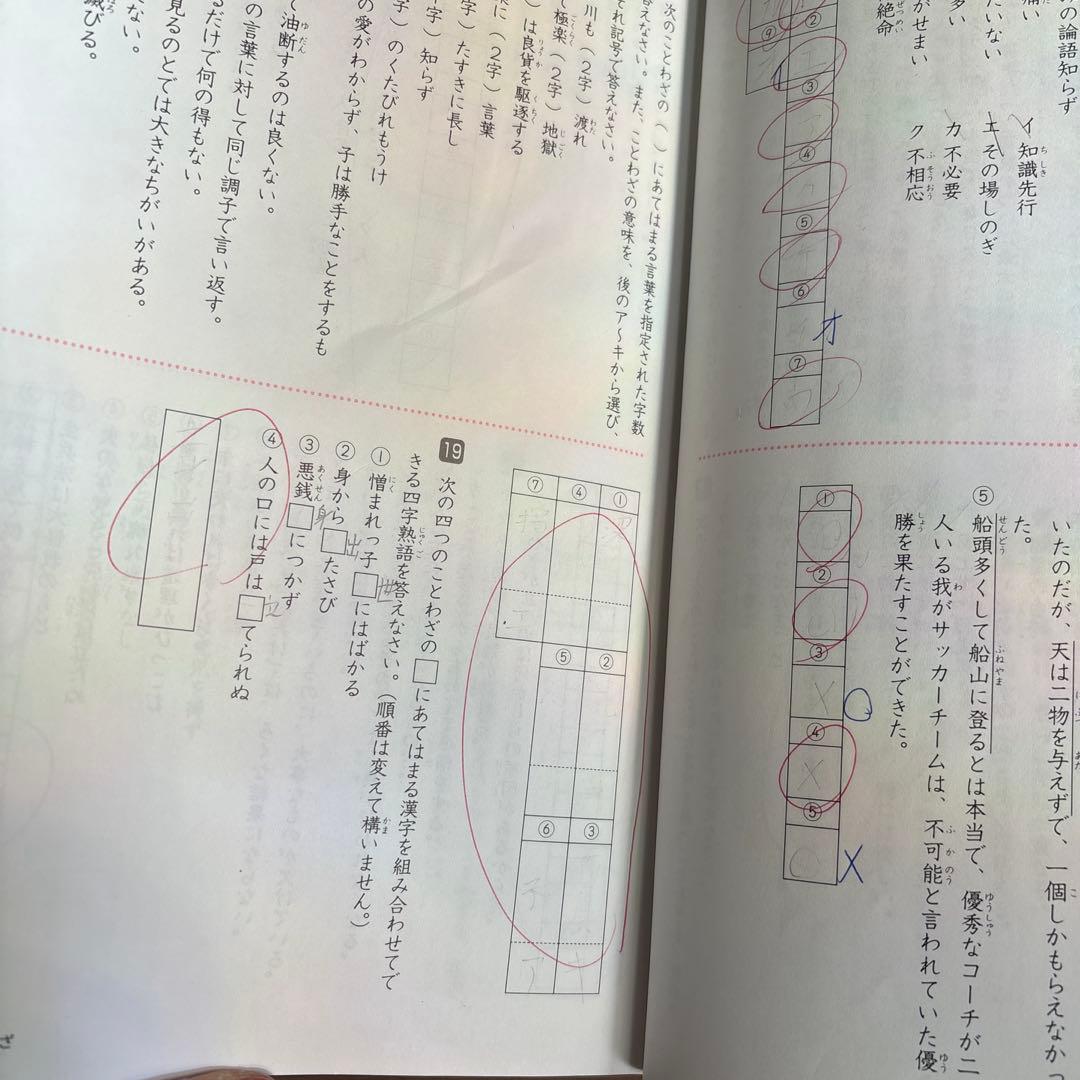 の論語知らず
痛い
たいない
多い
がせまい
絶命
ぜつめい
イ 知識先行
ちしき
エ その場しのぎ
カ 不必要
ク 不相応
ふそうおう
②
⑨
③
④
⑤
⑥
オ
⑦
いたのだが、天は二物を与えずで、一個しかもらえなかっ
た。
⑤ 船頭多くして船山に登るとは本当で、優秀なコーチが二
せんどう
ふねやま
ゆうしゅう
人いる我がサッカーチームは、不可能と言われていた優
わ
ふかのう
ゆう
勝を果たすことができた。
しょう
①
②
③
X
④
X
⑤
X
次のことわざの( )にあてはまる言葉を指定された字数
答えなさい。また、ことわざの意味を、後のア〜キから選び、
それ記号で答えなさい。
川も(2字)渡れ
わた
て極楽(2字)地獄
ごくらく
じごく
)は良貨を駆逐する
りょうか
くちく
に(2字)言葉
字)たすきに長し
字)知らず
字)のくたびれもうけ
の愛がわからず、子は勝手なことをするも
て油断するのは良くない。
ゆだん
の言葉に対して同じ調子で言い返す。
るだけで何の得もない。
見るのとでは大きなちがいがある。
ない。
滅びる。
① ④ ⑦
② ⑤
③ ⑥
19 次の四つのことわざの□にあてはまる漢字を組み合わせてで
きる四字熟語を答えなさい。(順番は変えて構いません。)
じゅくご
かま
① 憎まれっ子□にはばかる
にく
世
② 身から□たさび
出
③ 悪銭□につかず
あくせん
身
④ 人の口には戸は□てられぬ
立